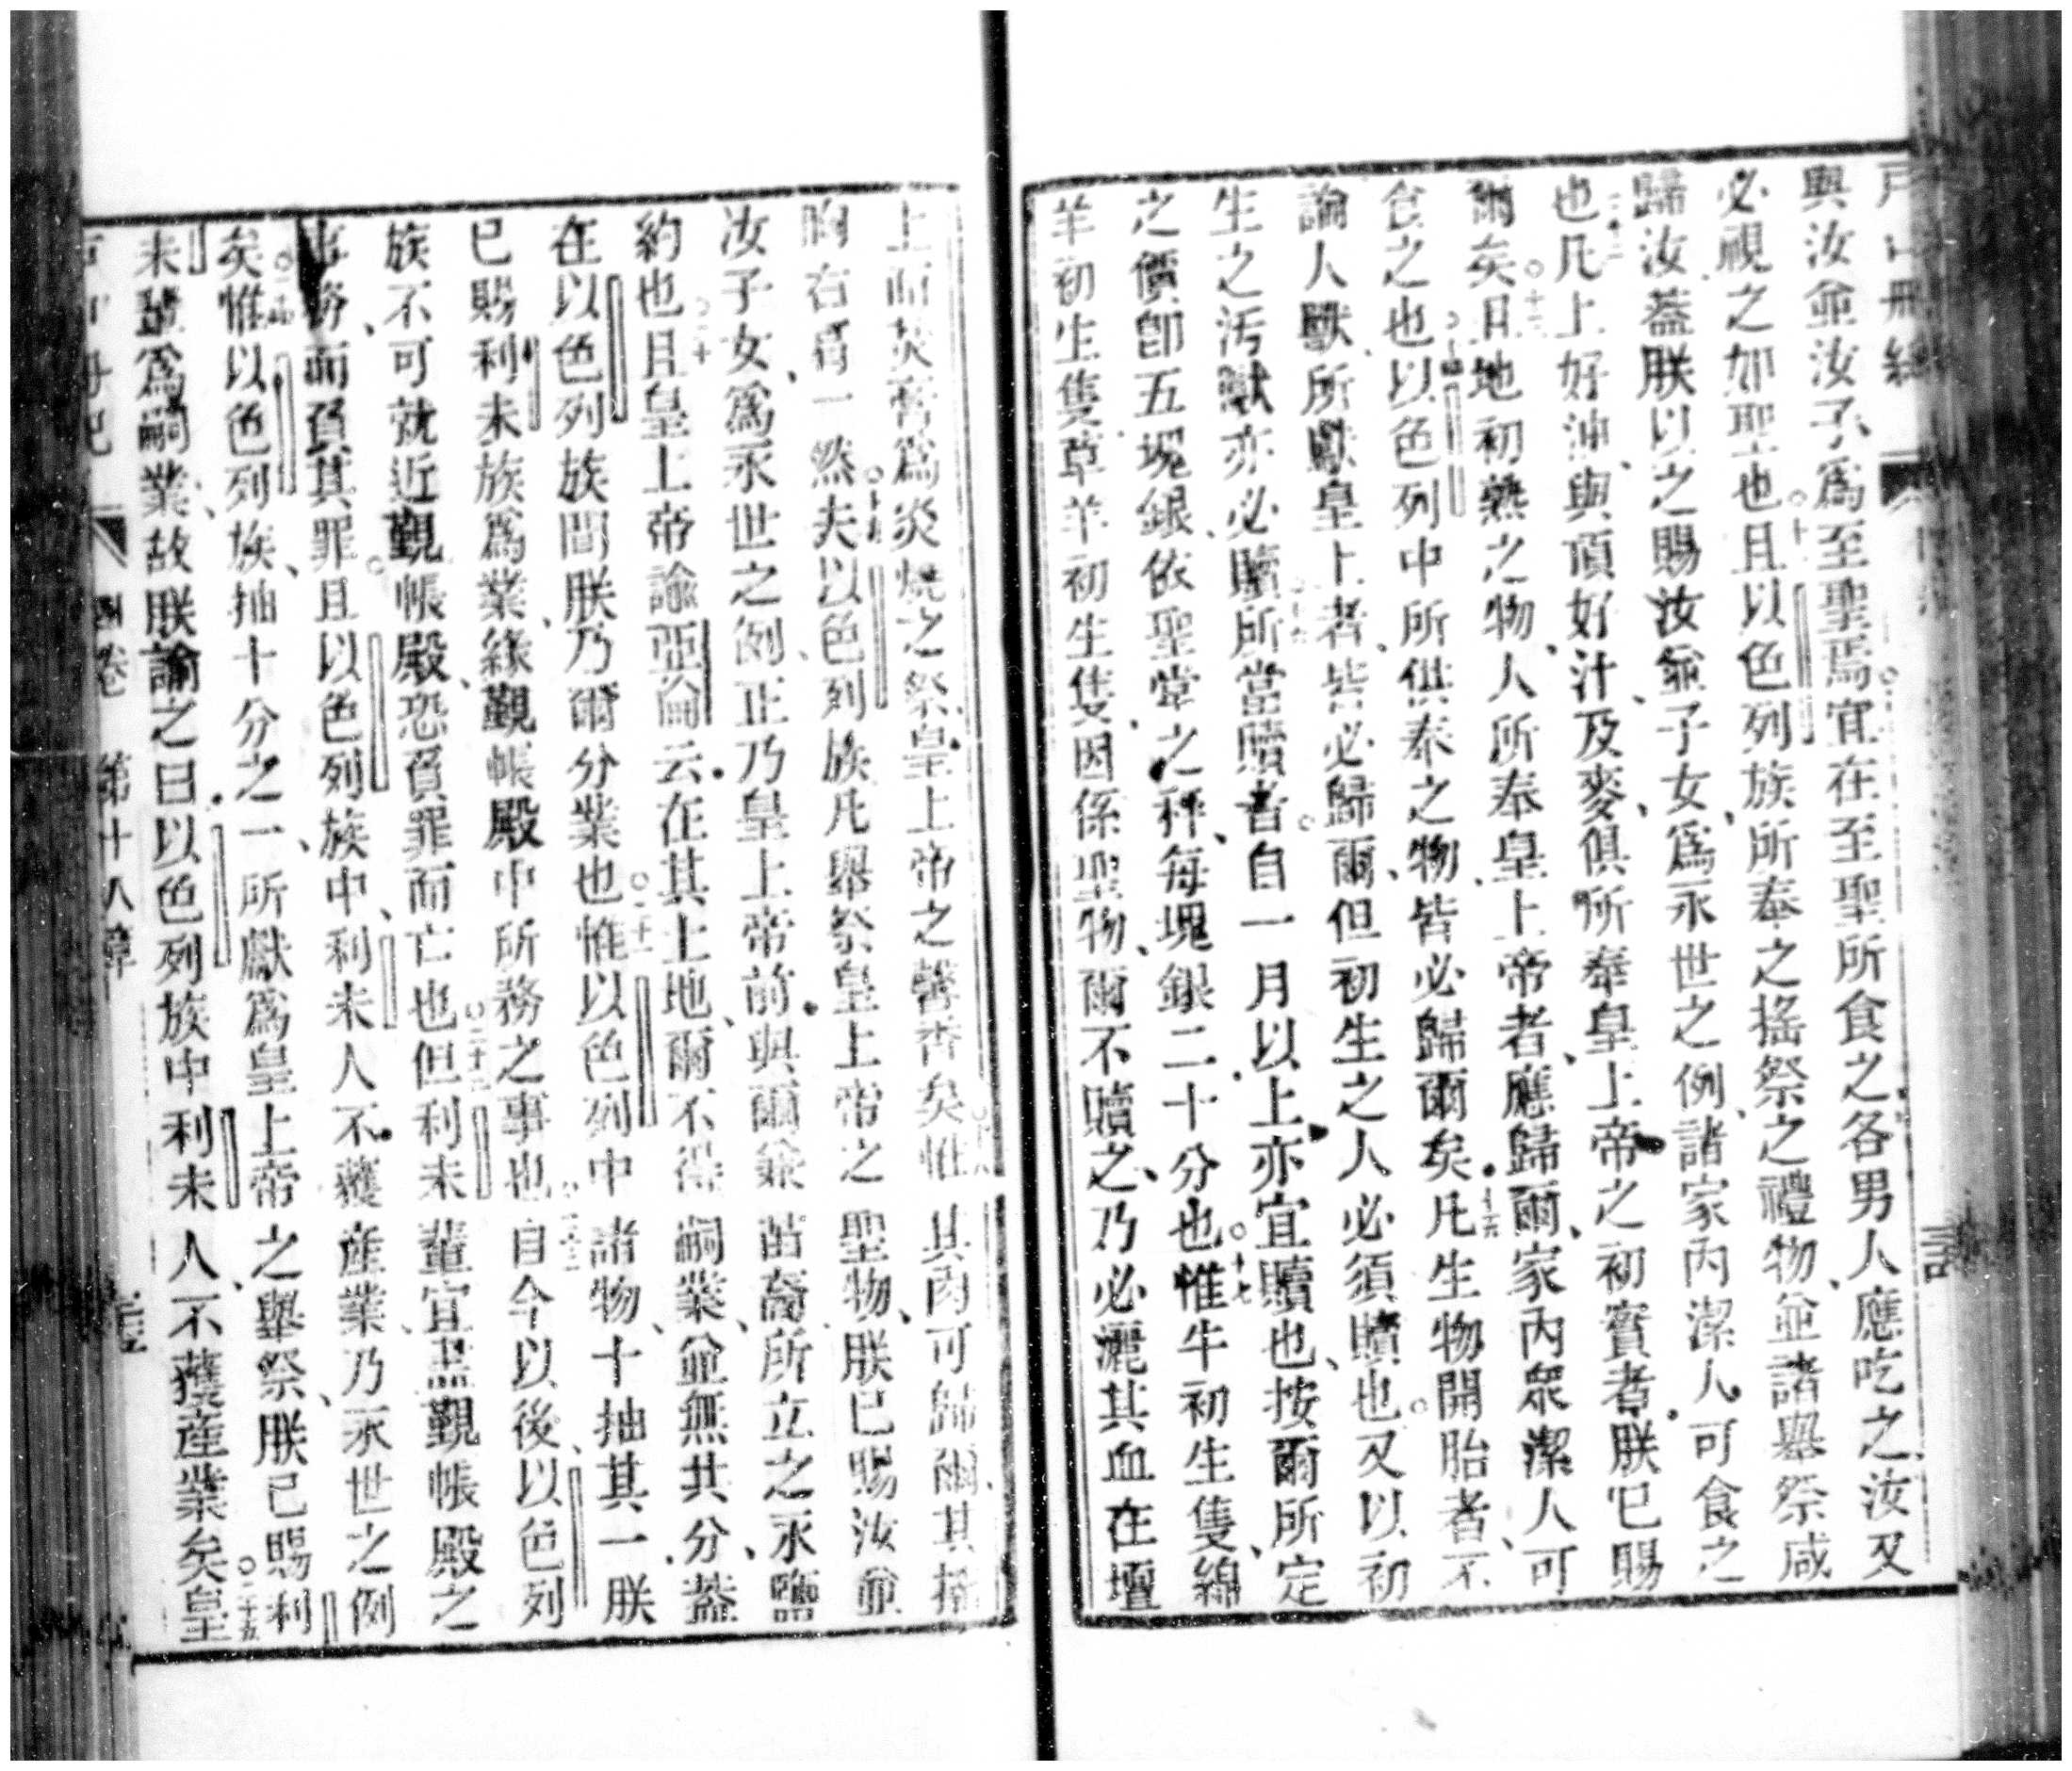 與汝並汝子爲至聖焉宜在至聖所食之各男人應吃之汝又
必視之如聖也且以色列族所奉之搖祭之禮物並諸舉祭咸
歸汝蓋朕以之賜汝並子女爲永世之例諸家內潔人可食之
也凡上好油與頂好汁及麥俱所奉皇上帝之初實者朕已賜
爾矣且地初熟之物人所奉皇上帝者應歸爾家內眾潔人可
食之也以色列中所供奉之物皆必歸爾矣凡生物開胎者不
論人獸所獻皇上者皆必歸爾但初生之人必須贖也又以初
生之汚獸亦必贖所當贖者自一月以上亦宜贖也按爾所定
之價卽五塊銀依聖堂之秤每塊銀二十分也惟牛初生隻綿
羊初生隻草羊初生隻因係聖物爾不贖之乃必灑其血在壇
上而焚膏爲炎燒之祭皇上帝之馨香矣惟其肉可歸爾其搖
胸右肩一然夫以色列族凡舉祭皇上帝之聖物朕已賜汝並
汝子女爲永世之例正乃皇上帝前與爾兼苗裔所立之永鹽
約也且皇上帝諭亞倫云在其土地爾不得嗣業並無共分蓋
在以色列族間朕乃爾分業也惟以色列中諸物十抽其一朕
已賜利未族爲業緣覲帳殿中所務之事也自今以後以色列
族不可就近覲帳殿恐負罪而亡也但利未輩宜盡覲帳殿之
事務而負其罪且以色列族中利未人不獲產業乃永世之例
矣惟以色列族抽十分之一所獻爲皇上帝之舉祭朕已賜利
未輩爲嗣業故朕諭之曰以色列族中利未人不獲產業矣皇
四卷 第十八章